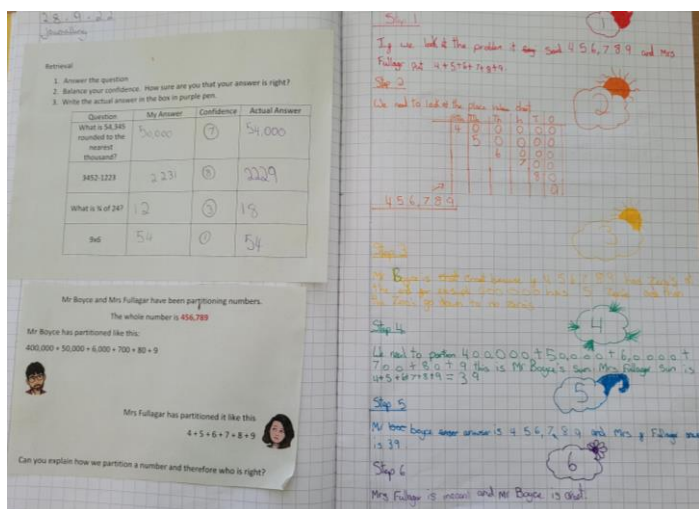 28.9.22
Retrieval
1. Answer the question
2. Balance your confidence. How sure are you that your answer is right?
3. Write the actual answer in the box in purple pen.
Question My Answer Confidence Actual Answer
What is 54,345 rounded to the nearest thousand? 50,000 7 54,000
3452-1223 2231 8 2229
What is ¾ of 24? 12 3 18
9x6 54 54
Mr Boyce and Mrs Fullagar have been partitioning numbers.
The whole number is 456,789
Mr Boyce has partitioned like this:
400,000 + 50,000 + 6,000 + 700 + 80 + 9
Mrs Fullagar has partitioned it like this
4 + 5 + 6 + 7 + 8 + 9
Can you explain how we partition a number and therefore who is right?
Step 1
1
we look at the problem it said 4 5 6, 7 8 9 and Mrs
Fullagar Put 4+5+6+7+8+9.
Step 2
2
We need to look at the place value chart
Th H T O
4 0 0 0 0 0
5 0 0 0 0
6 0 0 0
7 0 0
8 0
9
4 5 6, 7 8 9
3
4 5 6 7 8 9 has
has 5
go down to no
Step 4
4
We need to 400,000+50,000+6,000+
700+80+9 this is Mr Boyce's sum Mrs Fullagar sum is
4+5+6+7+8+9 = 39
Step 5
5
Mr boyce answer is 4 5 6, 7 8 9 and Mrs Fullagar
is 39
Step 6
6
Mrs Fullagar is and Mr Boyce is